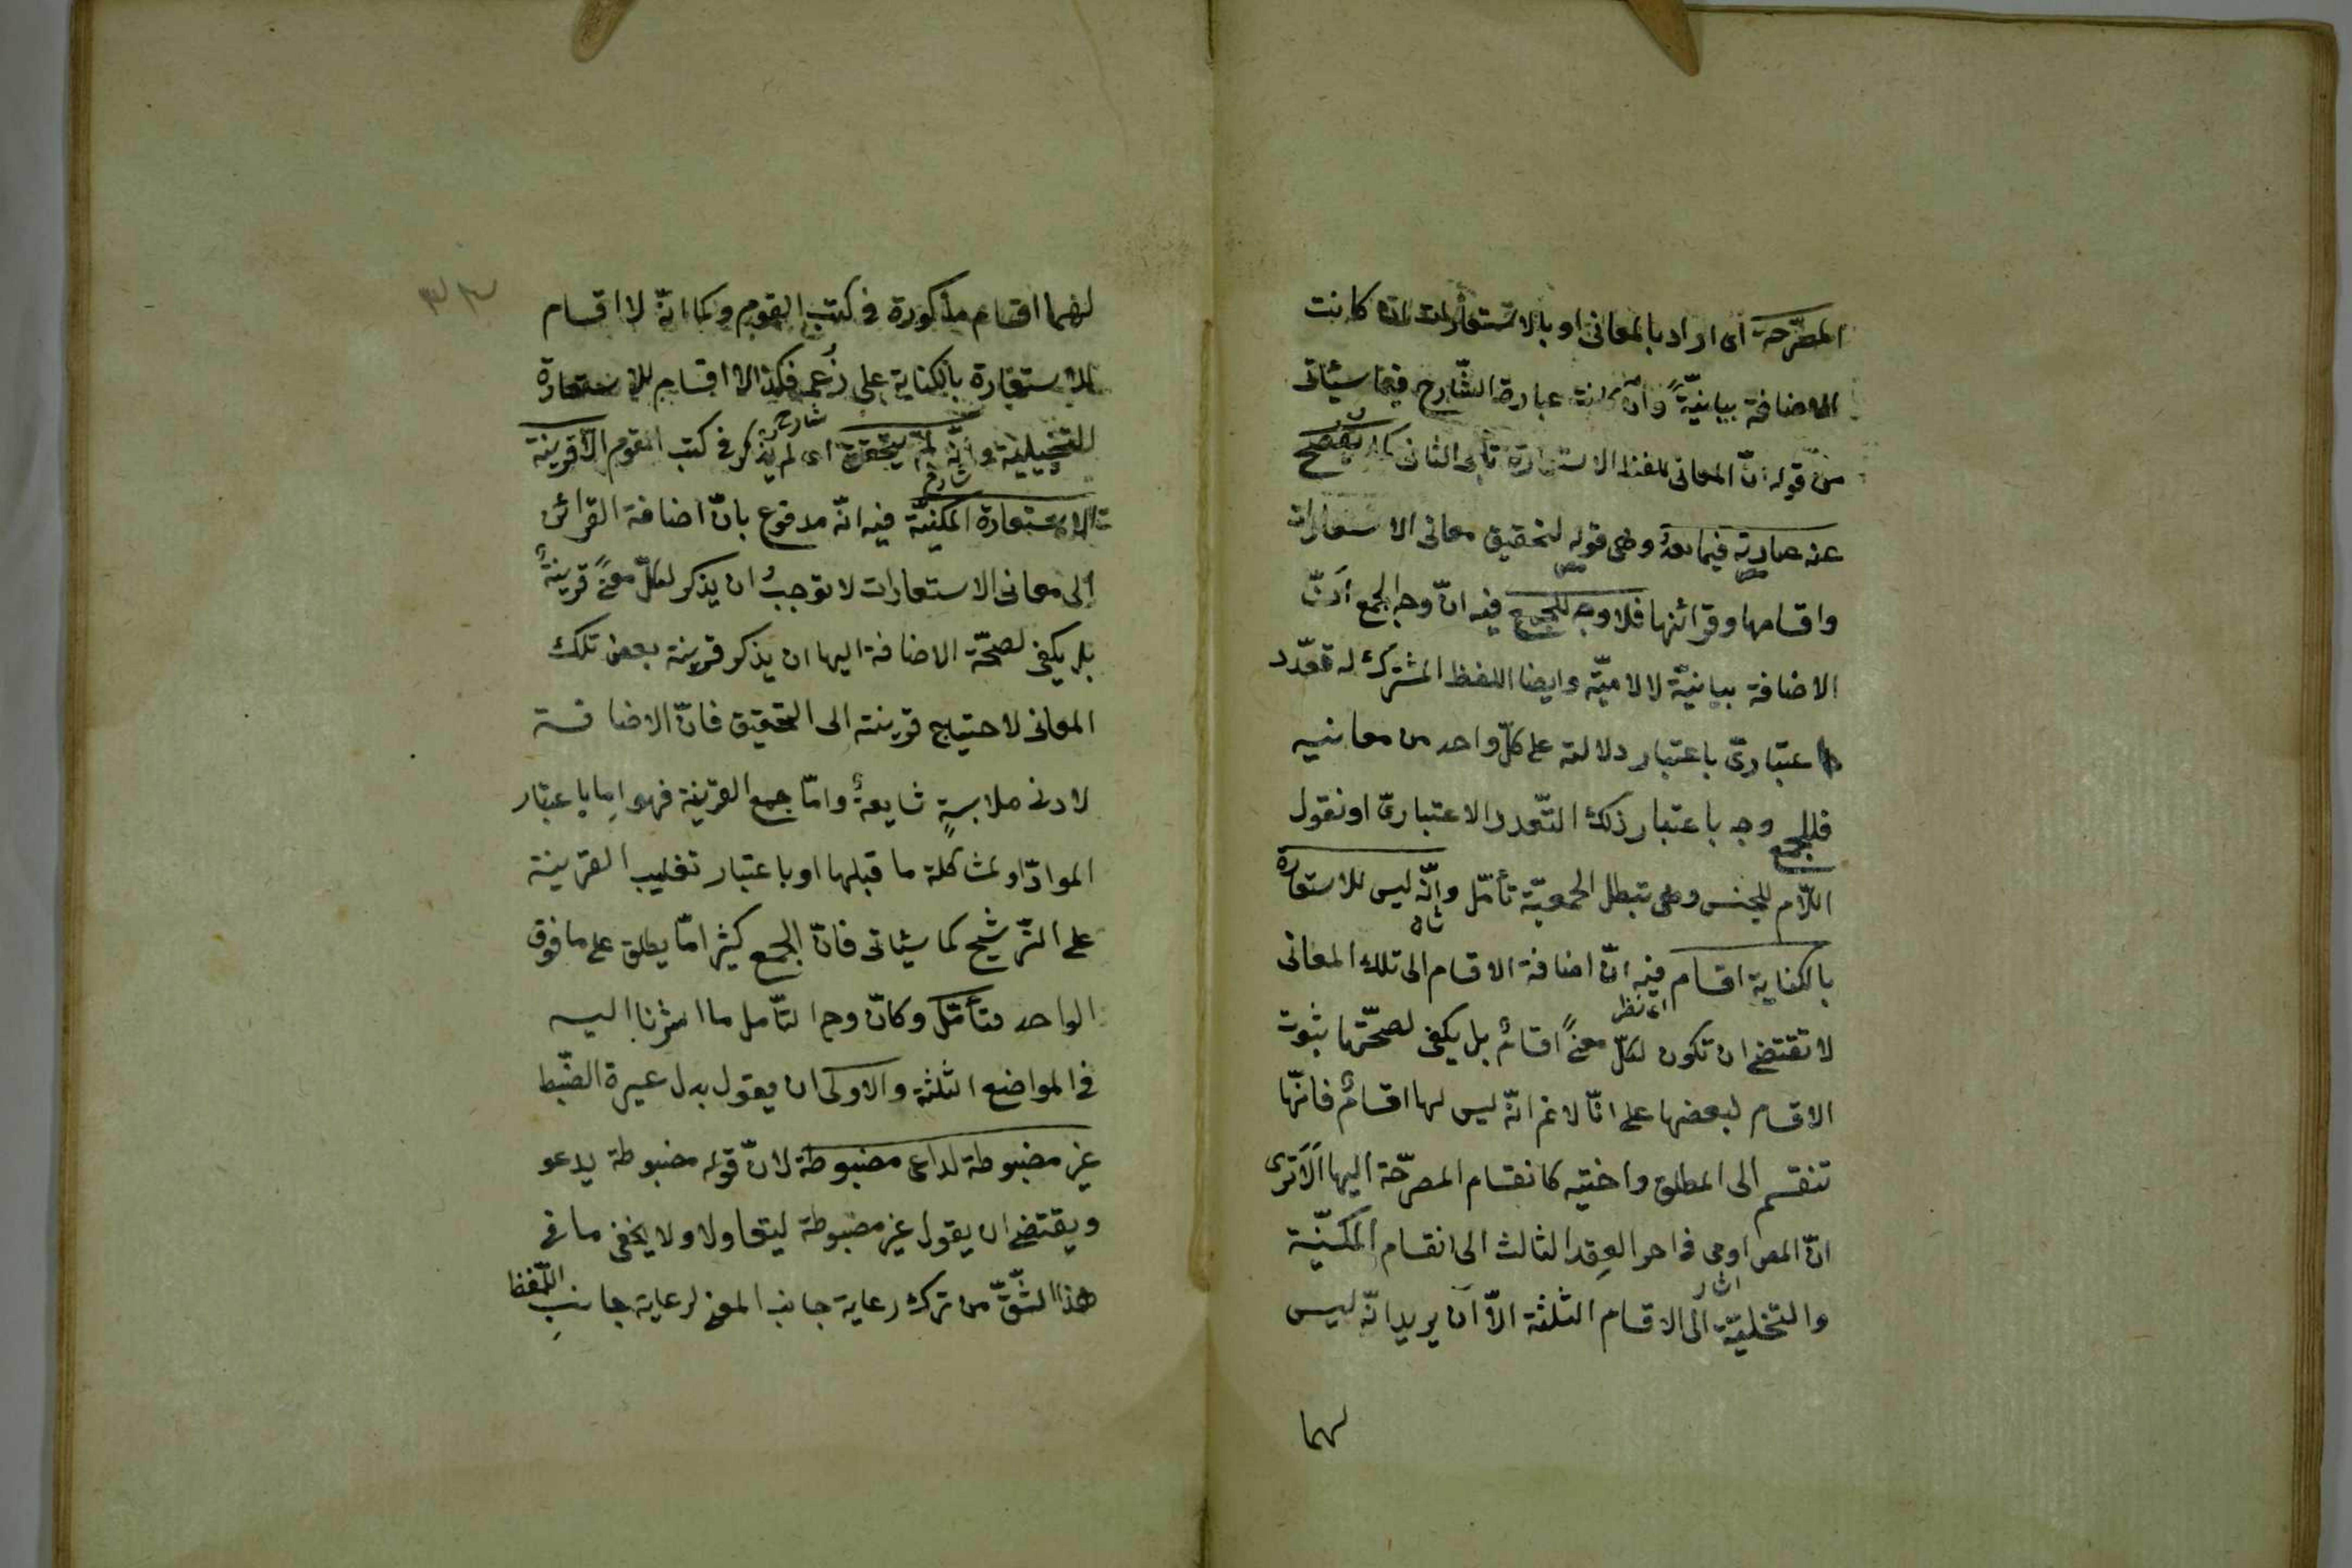 المصرّحة اى اراد بالمعانى او بالاستعارات كانت
الاضافة بيانيّةً وان كانت عبارة الشّارح فيما سيئاتى
من قوله انّ المعانى للفظ الاستعارة تأبى الثانى كما يُفصح
عنه عبارته فيما بعدُ وهى قوله لتحقيق معانى الاستعارات
واقسامها وقرائنها فلا وجه للجمع فيه انّ وجه الجمع انّ
الاضافة بيانيّة لا لاميّة وايضا اللفظ المشترك له تعدّد
اعتبارىّ باعتبار دلالته على كلّ واحد من معانيه
فللجمع وجه باعتبار ذلك التّعدد الاعتبارىّ او نقول
اللّام للجنس وهى تبطل الجمعيّة تأمّل وانّه ليس للاستعارة
بالكناية اقسام فيه انّ اضافة الاقسام الى تلك المعانى
لا تقتضى ان تكون لكلّ معنىً اقسامٌ بل يكفى لصحّتها ثبوت
الاقسام لبعضها على انّا لا نم انّه ليس لها اقسامٌ فانّها
تنقسم الى المطلق واختيه كانقسام المصرّحة اليها اَلَا ترى
انّ المص اومى فى اخر العِقد الثالث الى انقسام المكنيّة
والتّخليّة الى الاقسام الثلثة الاّ ان يريد انّه ليس
لهما
لهما اقسام مذكورة فى كتب القوم وكما انّه لا اقسام
للاستعارة بالكناية على زُعمه فكذا لا اقسام للاستعارة
التخييلية وانّه لم يتحقق اى لم يذكر فى كتب القوم الاّ قرينة
الاستعارة المكنيّة فيه انّه مدفوع بانّ اضافة القرائن
الى معانى الاستعارات لا توجبُ ان يذكر لكلّ معنىً قرينةٌ
بل يكفى لصحّة الاضافة اليها ان يذكر قرينة بعض تلك
المعانى لاحتياج قرينته الى التحقيق فانّ الاضافة
لادنى ملابسةٍ شايعةٌ وامّا جمع القرينة فهو اِما باعتبار
الموادّ او لمشاكلة ما قبلها او باعتبار تغليب القرينة
على التّرشيح كما سيئاتى فانّ الجمع كثيرا مّا يطلق على ما فوق
الواحد فتأمّل وكانّ وجه التّأمل ما اشرنا اليه
فى المواضع الثلثة والاولى ان يقول بدل عسيرة الضّبط
غير مضبوطة لداعى مضبوطة لانّ قوله مضبوطة يدعو
ويقتضى ان يقول غير مضبوطة ليتعاولا ولا يخفى ما فى
هذا الشّقّ من ترك رعاية جانب المعنى لرعاية جانبِ اللّفظ